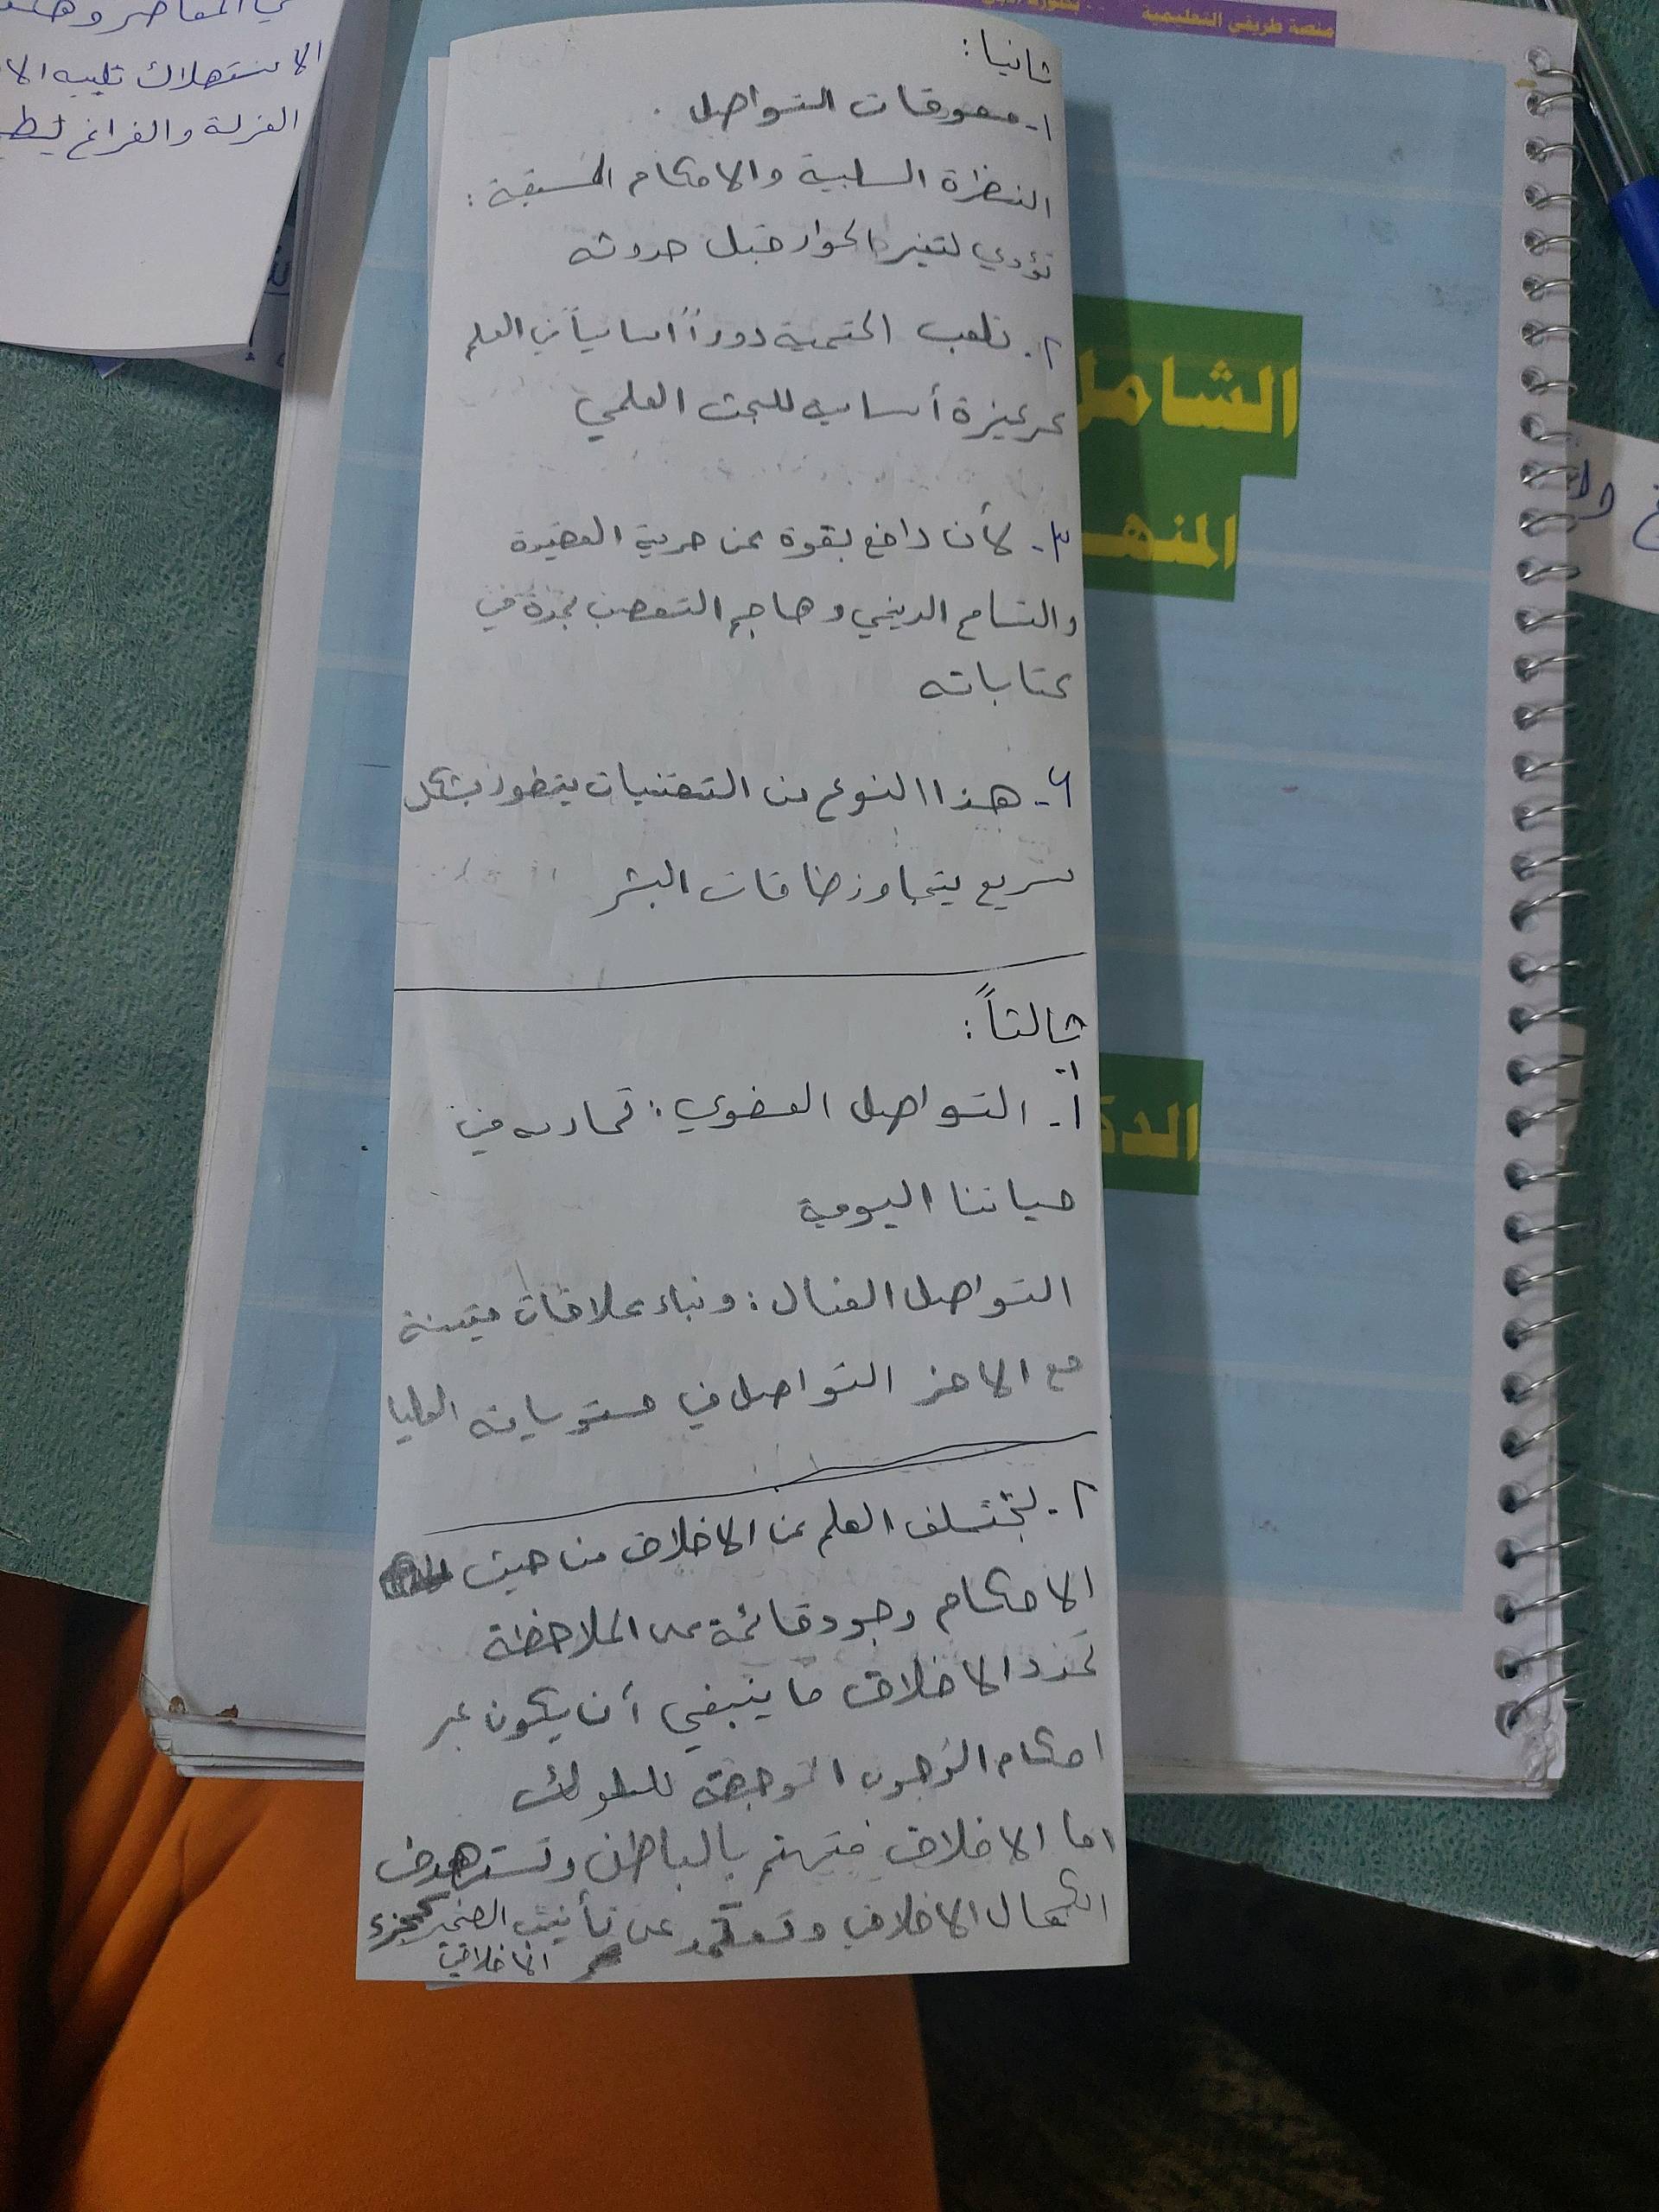 منصة طريقي التعليمية
ي المعاصر وهـ
الاستهلاك تلبيه الا
العزلة والفراغ ليطـ
ثانيا:
١- معوقات التواصل.
النظرة السلبية والاحكام المسبقة:
تؤدي لتغير الحوار قبل حدوثه
٢. تلعب الحتمية دوراً اساسياً في العلم
كركيزة أساسية للبحث العلمي
٣- لأن دافع بقوة عن حرية العقيدة
والتسامح الديني وهاجم التعصب بحدة في
كتاباته
٤- هذا النوع من التقنيات يتطور بشكل
سريع يتجاوز طاقات البشر
ثالثاً:
١-
أ- التواصل العفوي: نمارسه في
حياتنا اليومية
التواصل الفعال: وبناء علاقات متينة
مع الاخر التواصل في مستوياته العليا
٢- يختلف العلم عن الاخلاق من حيث
الاحكام وجود قائمة على الملاحظة
تحدد الاخلاق ما ينبغي أن يكون عبر
احكام الوجوب الموجهة للسلوك
اما الاخلاق فتهتم بالباطن وتستهدف
الكمال الاخلاقي وتعتمد عن تأنيب الضمير كجزء
الاخلاقي
الشامل
المنهـ
الدكـ